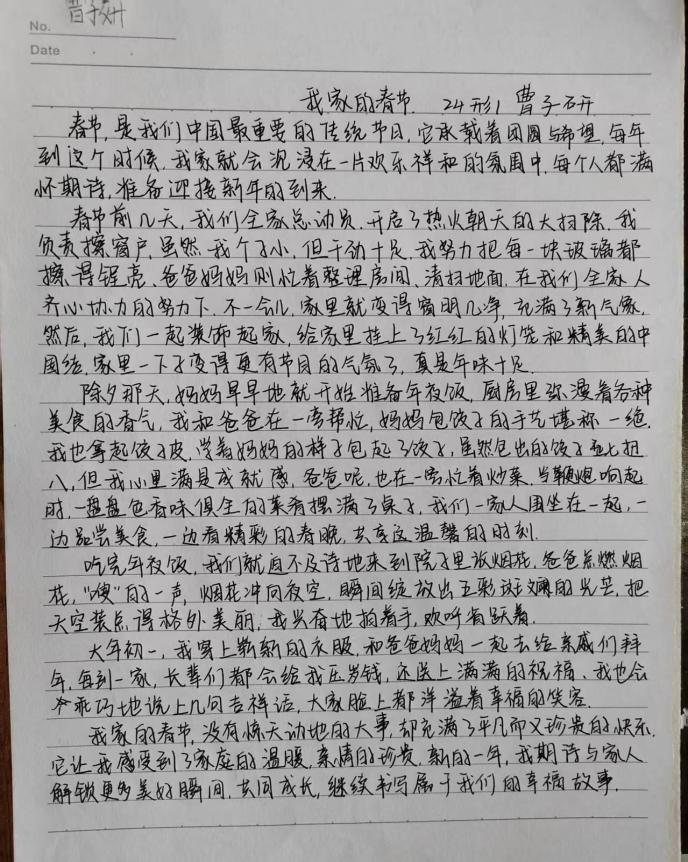 曹子妍
No.
Date
我家的春节. 24形1 曹子研
春节,是我们中国最重要的传统节日,它承载着团圆与希望,每年
到这个时候,我家就会沉浸在一片欢乐祥和的氛围中,每个人都满
怀期诗,准备迎接新年的到来.
春节前几天,我们全家总动员,开启了热火朝天的大扫除.我
负责擦窗户,虽然我个子小,但干劲十足,我努力把每一块玻璃都
擦得锃亮,爸爸妈妈则忙着整理房间、清扫地面,在我们全家人
齐心协力的努力下,不一会儿,家里就变得窗明几净,充满了新气象,
然后,我们一起装饰起家,给家里挂上了红红的灯笼和精美的中
国结,家里一下子变得更有节目的气氛了,真是年味十足.
除夕那天,妈妈早早地就开始准备年夜饭,厨房里弥漫着各种
美食的香气,我和爸爸在一旁帮忙,妈妈包饺子的手艺堪称一绝.
我也拿起饺子皮,学着妈妈的样子包起了饺子,虽然包出的饺子歪七扭
八,但我心里满是成就感,爸爸呢,也在一旁忙着炒菜,当鞭炮响起
时,一盘盘色香味俱全的菜肴摆满了桌子,我们一家人围坐在一起,一
边品尝美食,一边看精彩的春晚,共享这温馨的时刻.
吃完年夜饭,我们就迫不及诗地来到院子里放烟花,爸爸点燃烟
花,“嗖”的一声,烟花冲向夜空,瞬间绽放出五彩斑斓的光芒,把
天空装点得格外美丽.我兴奋地拍着手,欢呼雀跃着.
大年初一,我穿上崭新的衣服,和爸爸妈妈一起去给亲戚们拜
年,每到一家,长辈们都会给我压岁钱,还送上满满的祝福、我也会
乖巧地说上几句吉祥话,大家脸上都洋溢着幸福的笑容.
我家的春节,没有惊天动地的大事,却充满了平凡而又珍贵的快乐.
它让我感受到了家庭的温暖,亲情的珍贵,新的一年,我期诗与家人
解锁更多美好瞬间,共同成长,继续书写属于我们的幸福故事.